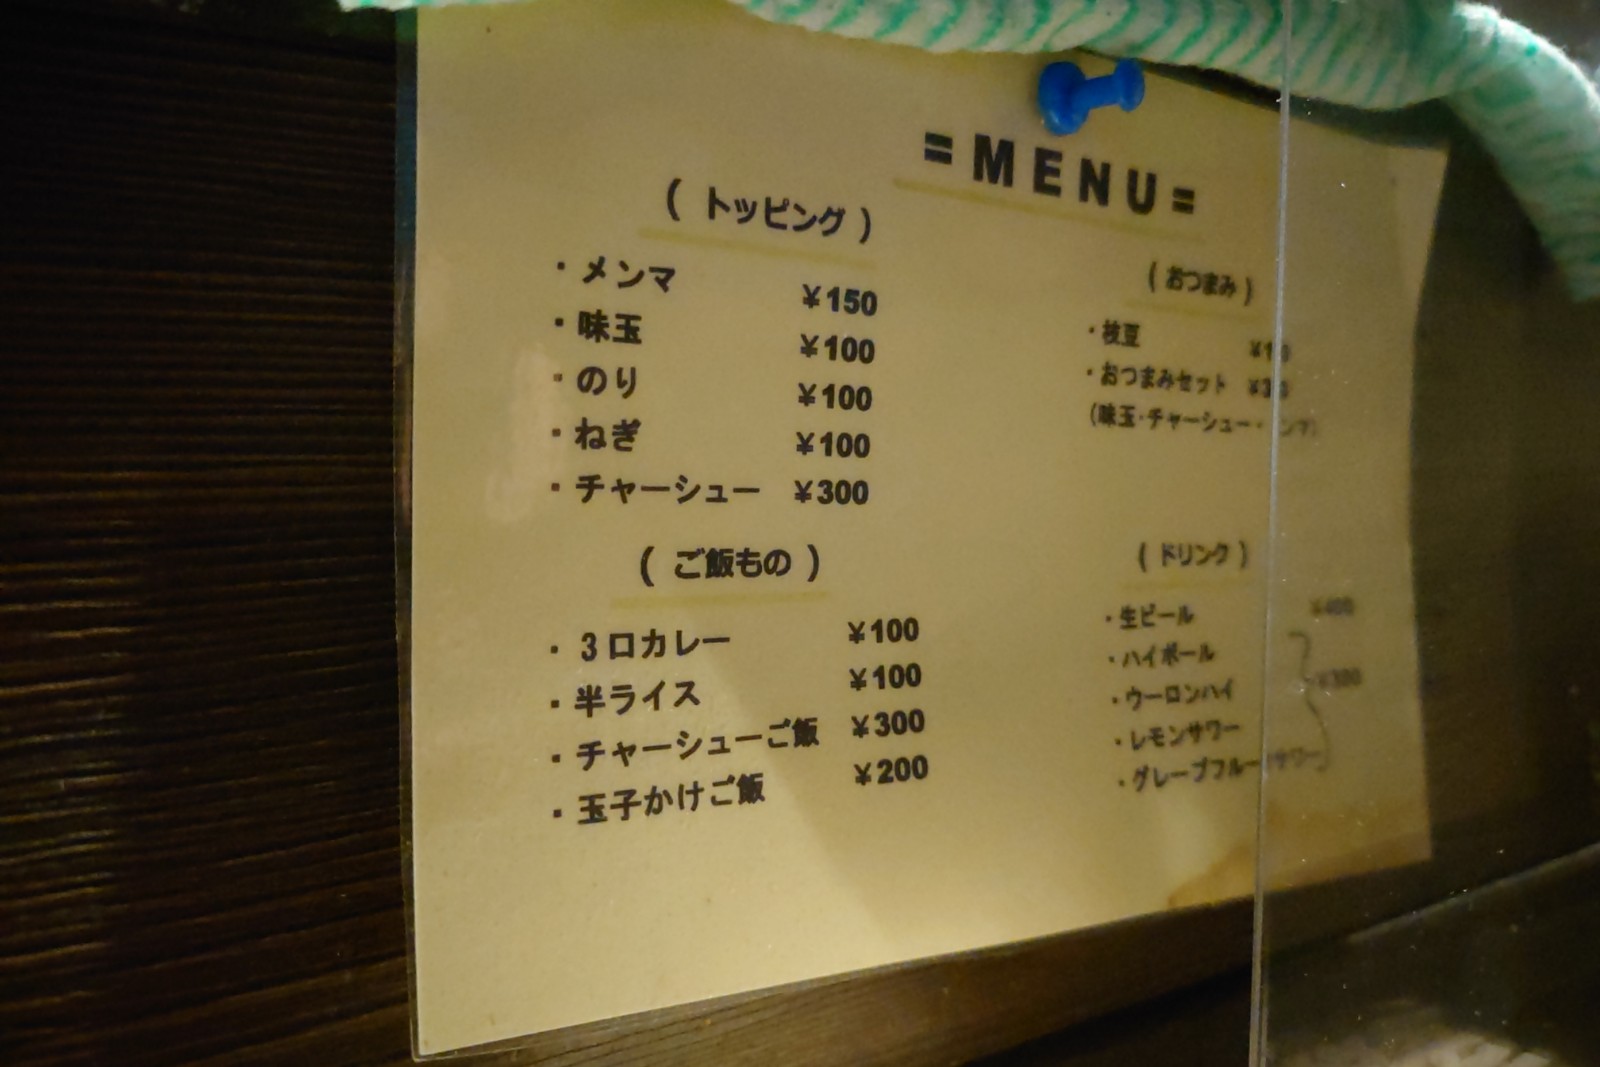 =MENU=
( トッピング )
・メンマ ¥150
・味玉 ¥100
・のり ¥100
・ねぎ ¥100
・チャーシュー ¥300
( ご飯もの )
・3口カレー ¥100
・半ライス ¥100
・チャーシューご飯 ¥300
・玉子かけご飯 ¥200
( おつまみ )
・枝豆
・おつまみセット
(味玉・チャーシュー・
( ドリンク )
・生ビール ¥400
・ハイボール
・ウーロンハイ ¥300
・レモンサワー
・グレープフルーツサワー